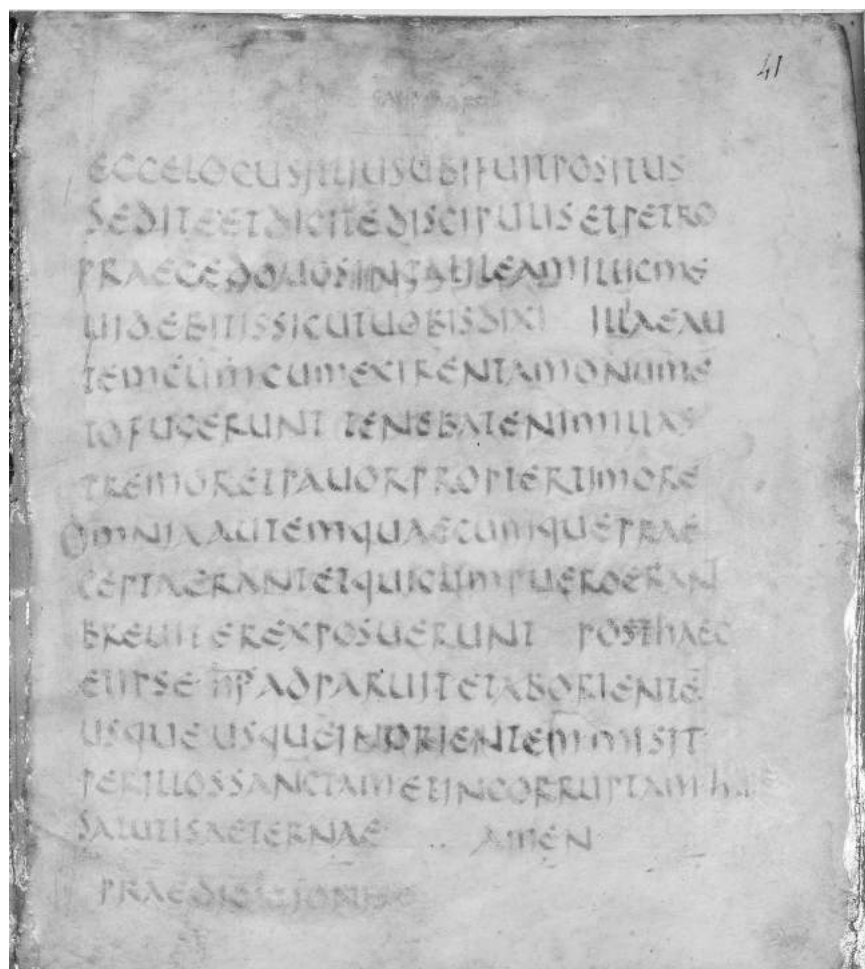 41
ECCELOCUSILLIUSUBIFUITPOSITUS
SEDITEETDICITEDISCIPULISETPETRO
PRAECEDOUOSINGALILEAMILLICME
UIDEBITISSICUTUOBISDIXI ILLAEAU
TEMCUMCUMEXIRENTAMONUME
TOFUGERUNT TENEBATENIMILLAS
TREMORETPAUORPROPTERTIMORE
OMNIAAUTEMQUAECUMQUEPRAE
CEPTAERANTETQUICUMPUEROERAN
BREUITEREXPOSUERUNT POSTHAEC
ETIPSE ADPARUITETABORIENTE
USQUE USQUEINORIENTEMMISIT
PERILLOSSANCTAMETINCORRUPTAM
SALUTISAETERNAE .. AMEN